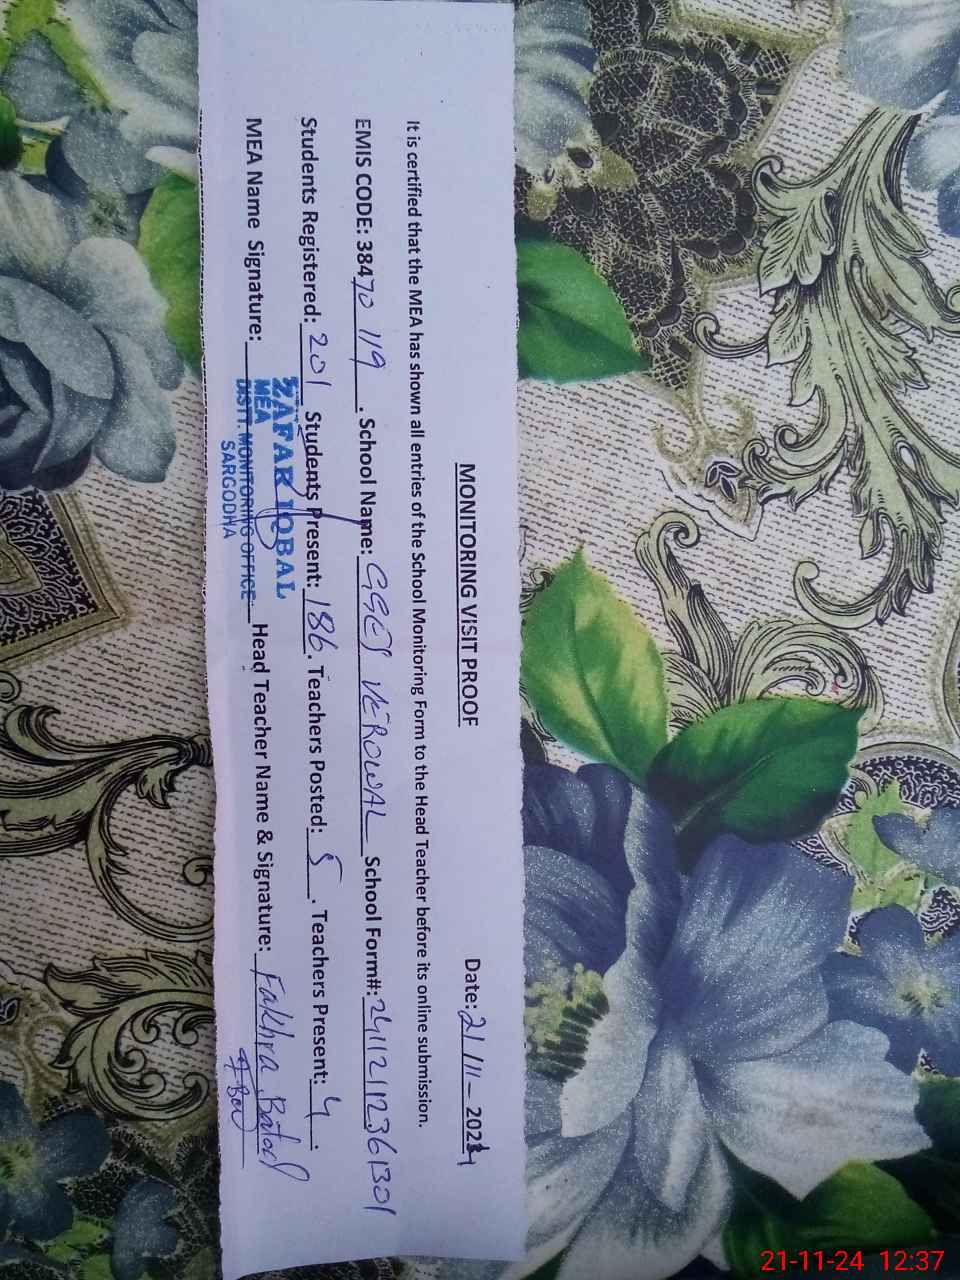 MONITORING VISIT PROOF
Date: 21/11-2024
It is certified that the MEA has shown all entries of the School Monitoring Form to the Head Teacher before its online submission.
EMIS CODE: 38470119. School Name: GGES VEROWAL School Form#: 24112112361301
Students Registered: 201 Students Present: 186. Teachers Posted: 5. Teachers Present: 4.
MEA Name Signature: Head Teacher Name & Signature: Fakhra Batool
ZAFAR IQBAL
MEA
DISTT. MONITORING OFFICE
SARGODHA
21-11-24 12:37